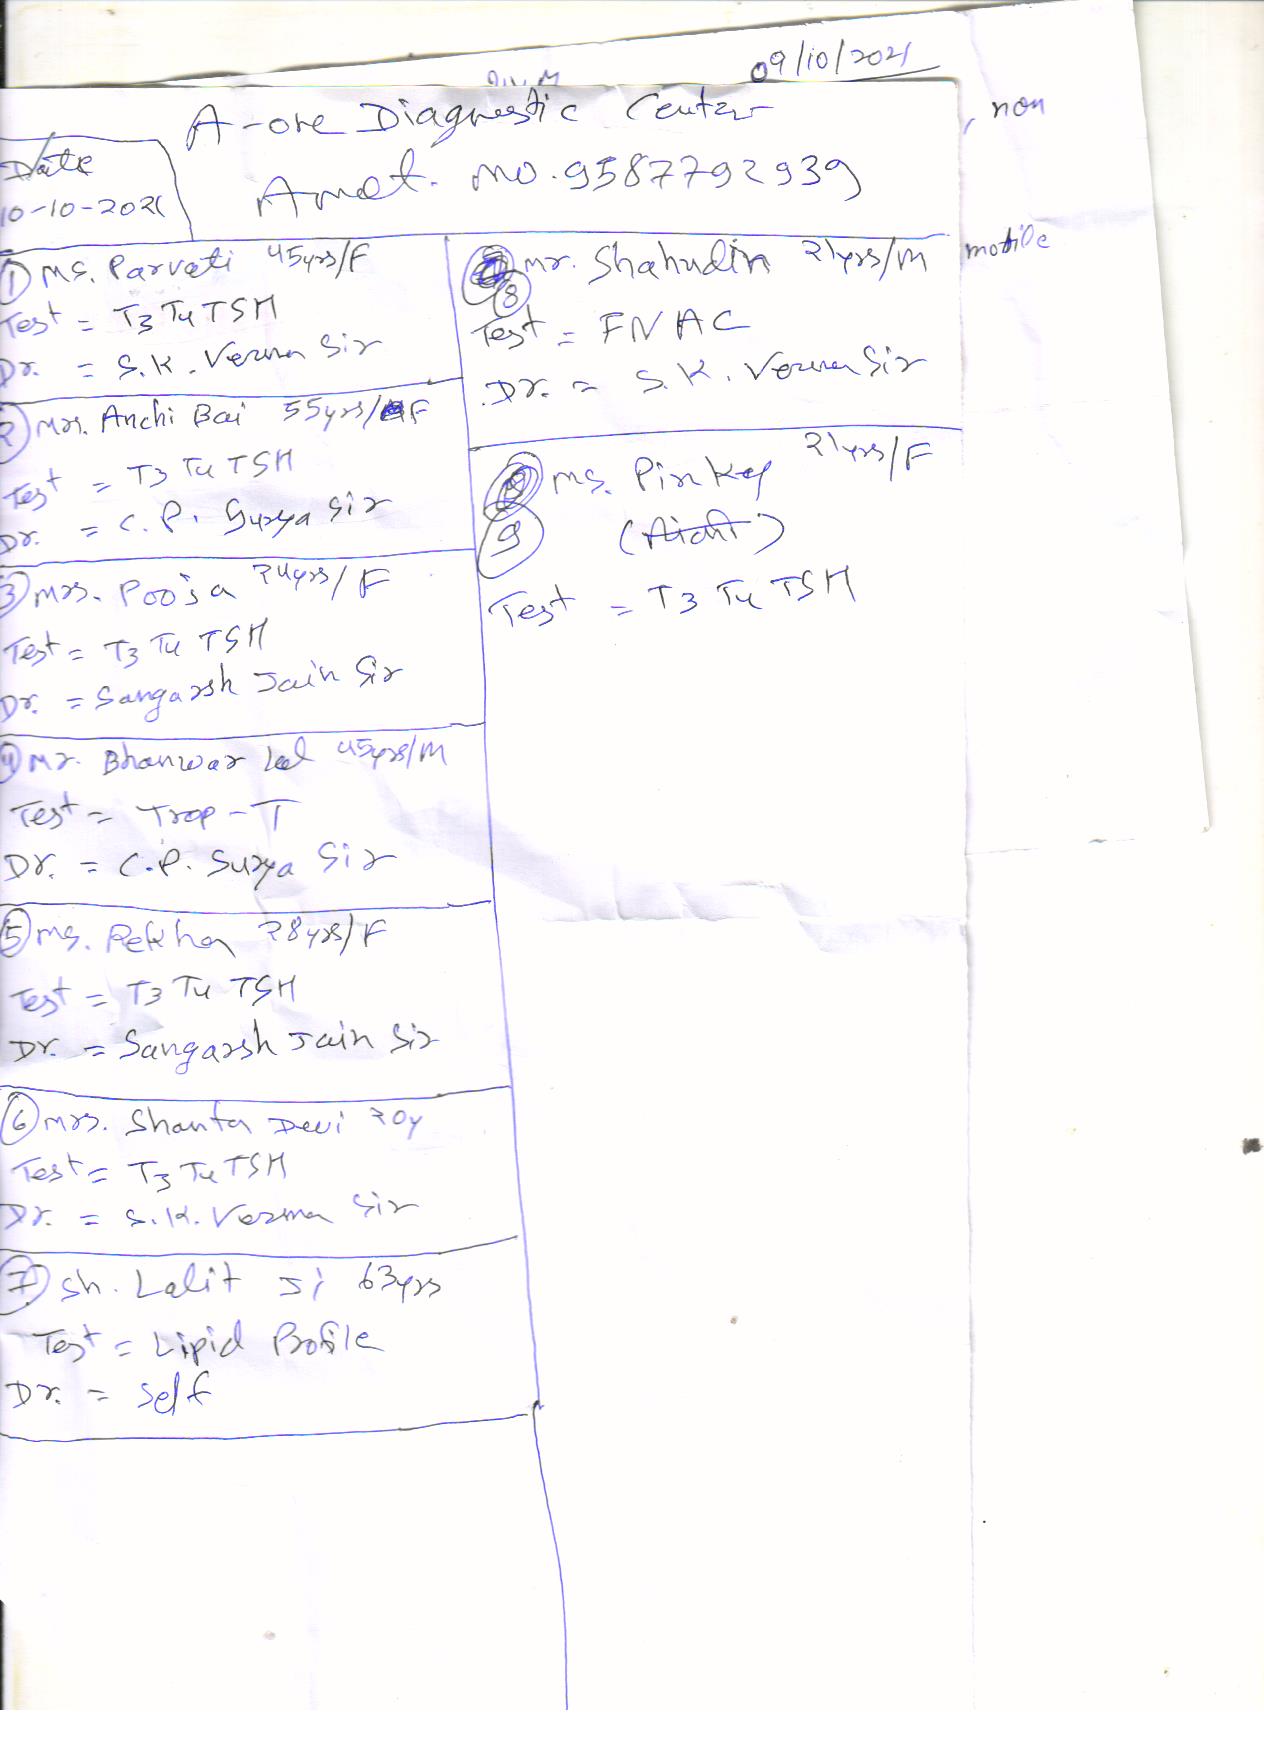 09/10/2021
A-one Diagnostic Center
Amet. mo. 9587792939
Date
10-10-2021
, non
motile
① Ms. Parvati 45yrs/F
Test = T3 T4 TSH
Dr. = S.K. Verma Sir
② Mrs. Anchi Bai 55yrs/F
Test = T3 T4 TSH
Dr. = C.P. Surya Sir
③ Mrs. Pooja 24yrs/F
Test = T3 T4 TSH
Dr. = Sangarsh Jain Sir
④ Mr. Bhanwar Lal 45yrs/M
Test = Trop-T
Dr. = C.P. Surya Sir
⑤ Ms. Rekha 28yrs/F
Test = T3 T4 TSH
Dr. = Sangarsh Jain Sir
⑥ Mrs. Shanta Devi 20y
Test = T3 T4 TSH
Dr. = S.K. Verma Sir
⑦ Sh. Lalit Ji 63yrs
Test = Lipid Profile
Dr. = Self
⑧ Mr. Shahudin 21yrs/M
Test = FNAC
Dr. = S.K. Verma Sir
⑨ Ms. Pinkey 21yrs/F
Test = T3 T4 TSH